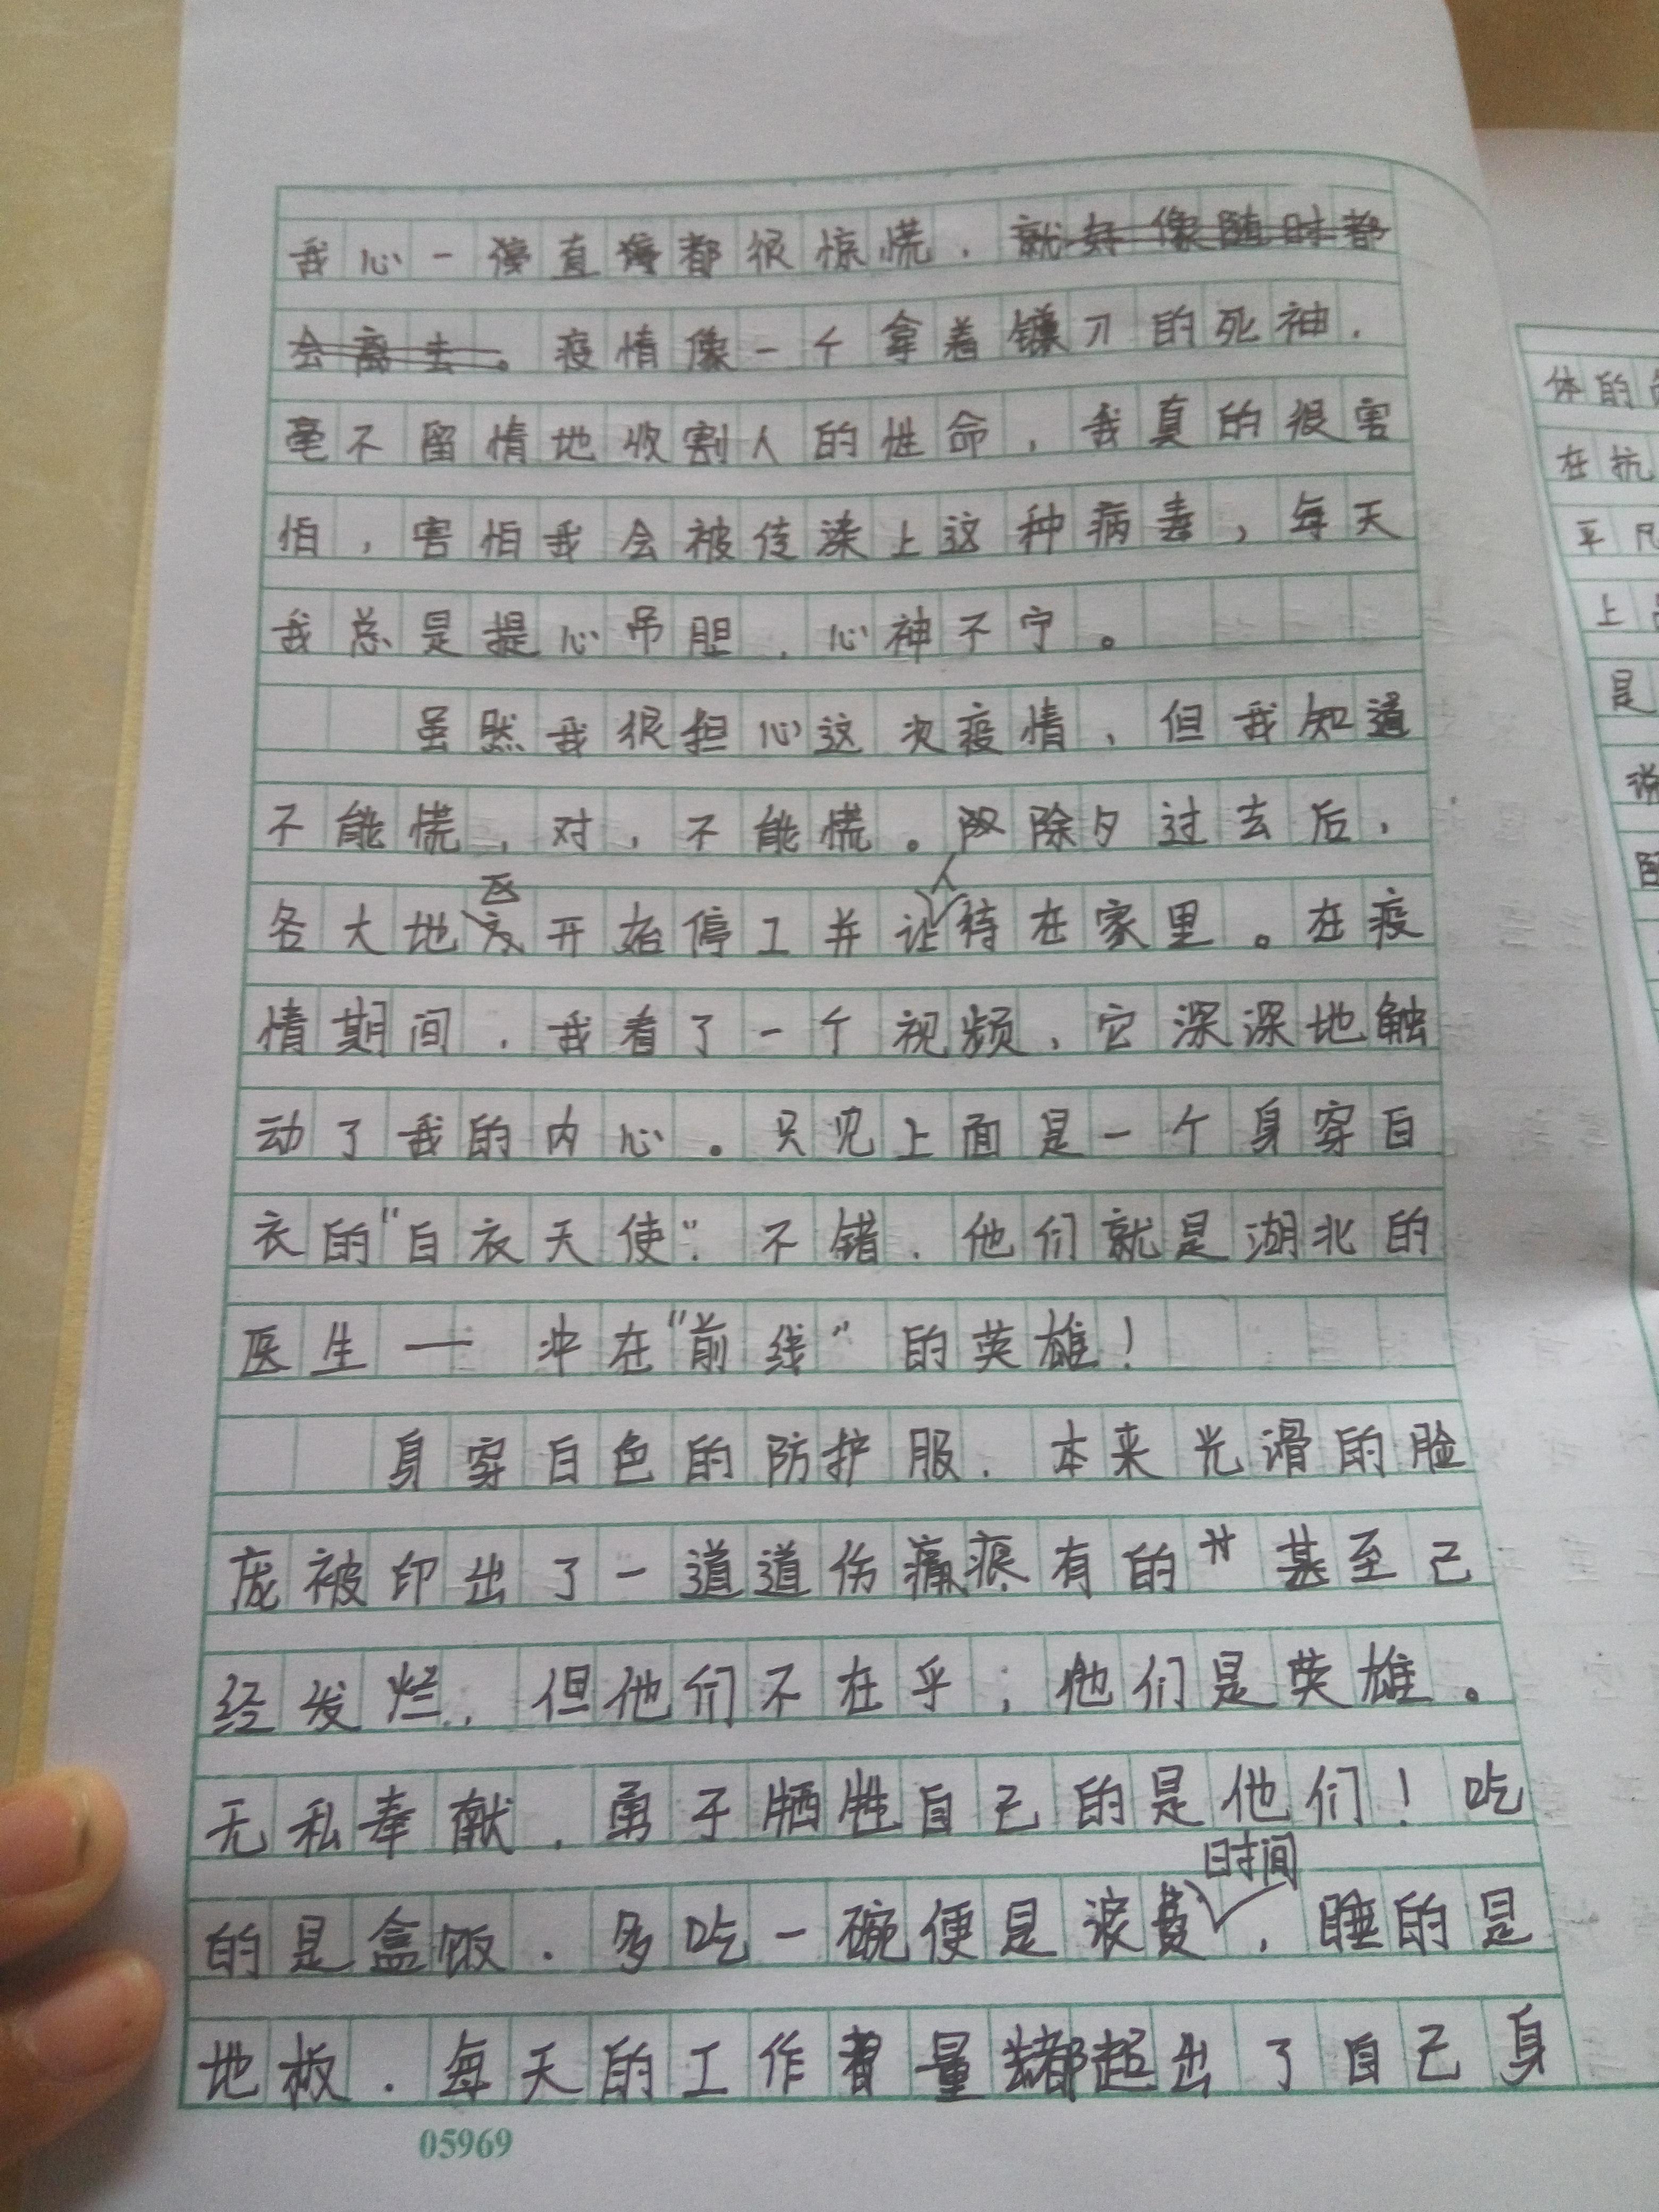 我心一直都很惊慌，就好像随时都
会离去。疫情像一个拿着镰刀的死神，
毫不留情地收割人的性命，我真的很害
怕，害怕我会被传染上这种病毒，每天
我总是提心吊胆，心神不宁。
虽然我很担心这次疫情，但我知道
不能慌，对，不能慌。除夕过去后，
各大地区开始停工并让人待在家里。在疫
情期间，我看了一个视频，它深深地触
动了我的内心。只见上面是一个身穿白
衣的"白衣天使"。不错，他们就是湖北的
医生——冲在"前线"的英雄！
身穿白色的防护服，本来光滑的脸
庞被印出了一道道伤痕有的甚至已
经发烂，但他们不在乎，他们是英雄。
无私奉献，勇于牺牲自己的是他们！吃
的是盒饭，多吃一碗便是浪费时间，睡的是
地板，每天的工作量都超出了自己身
05969
体的
在抗
平凡
上
是